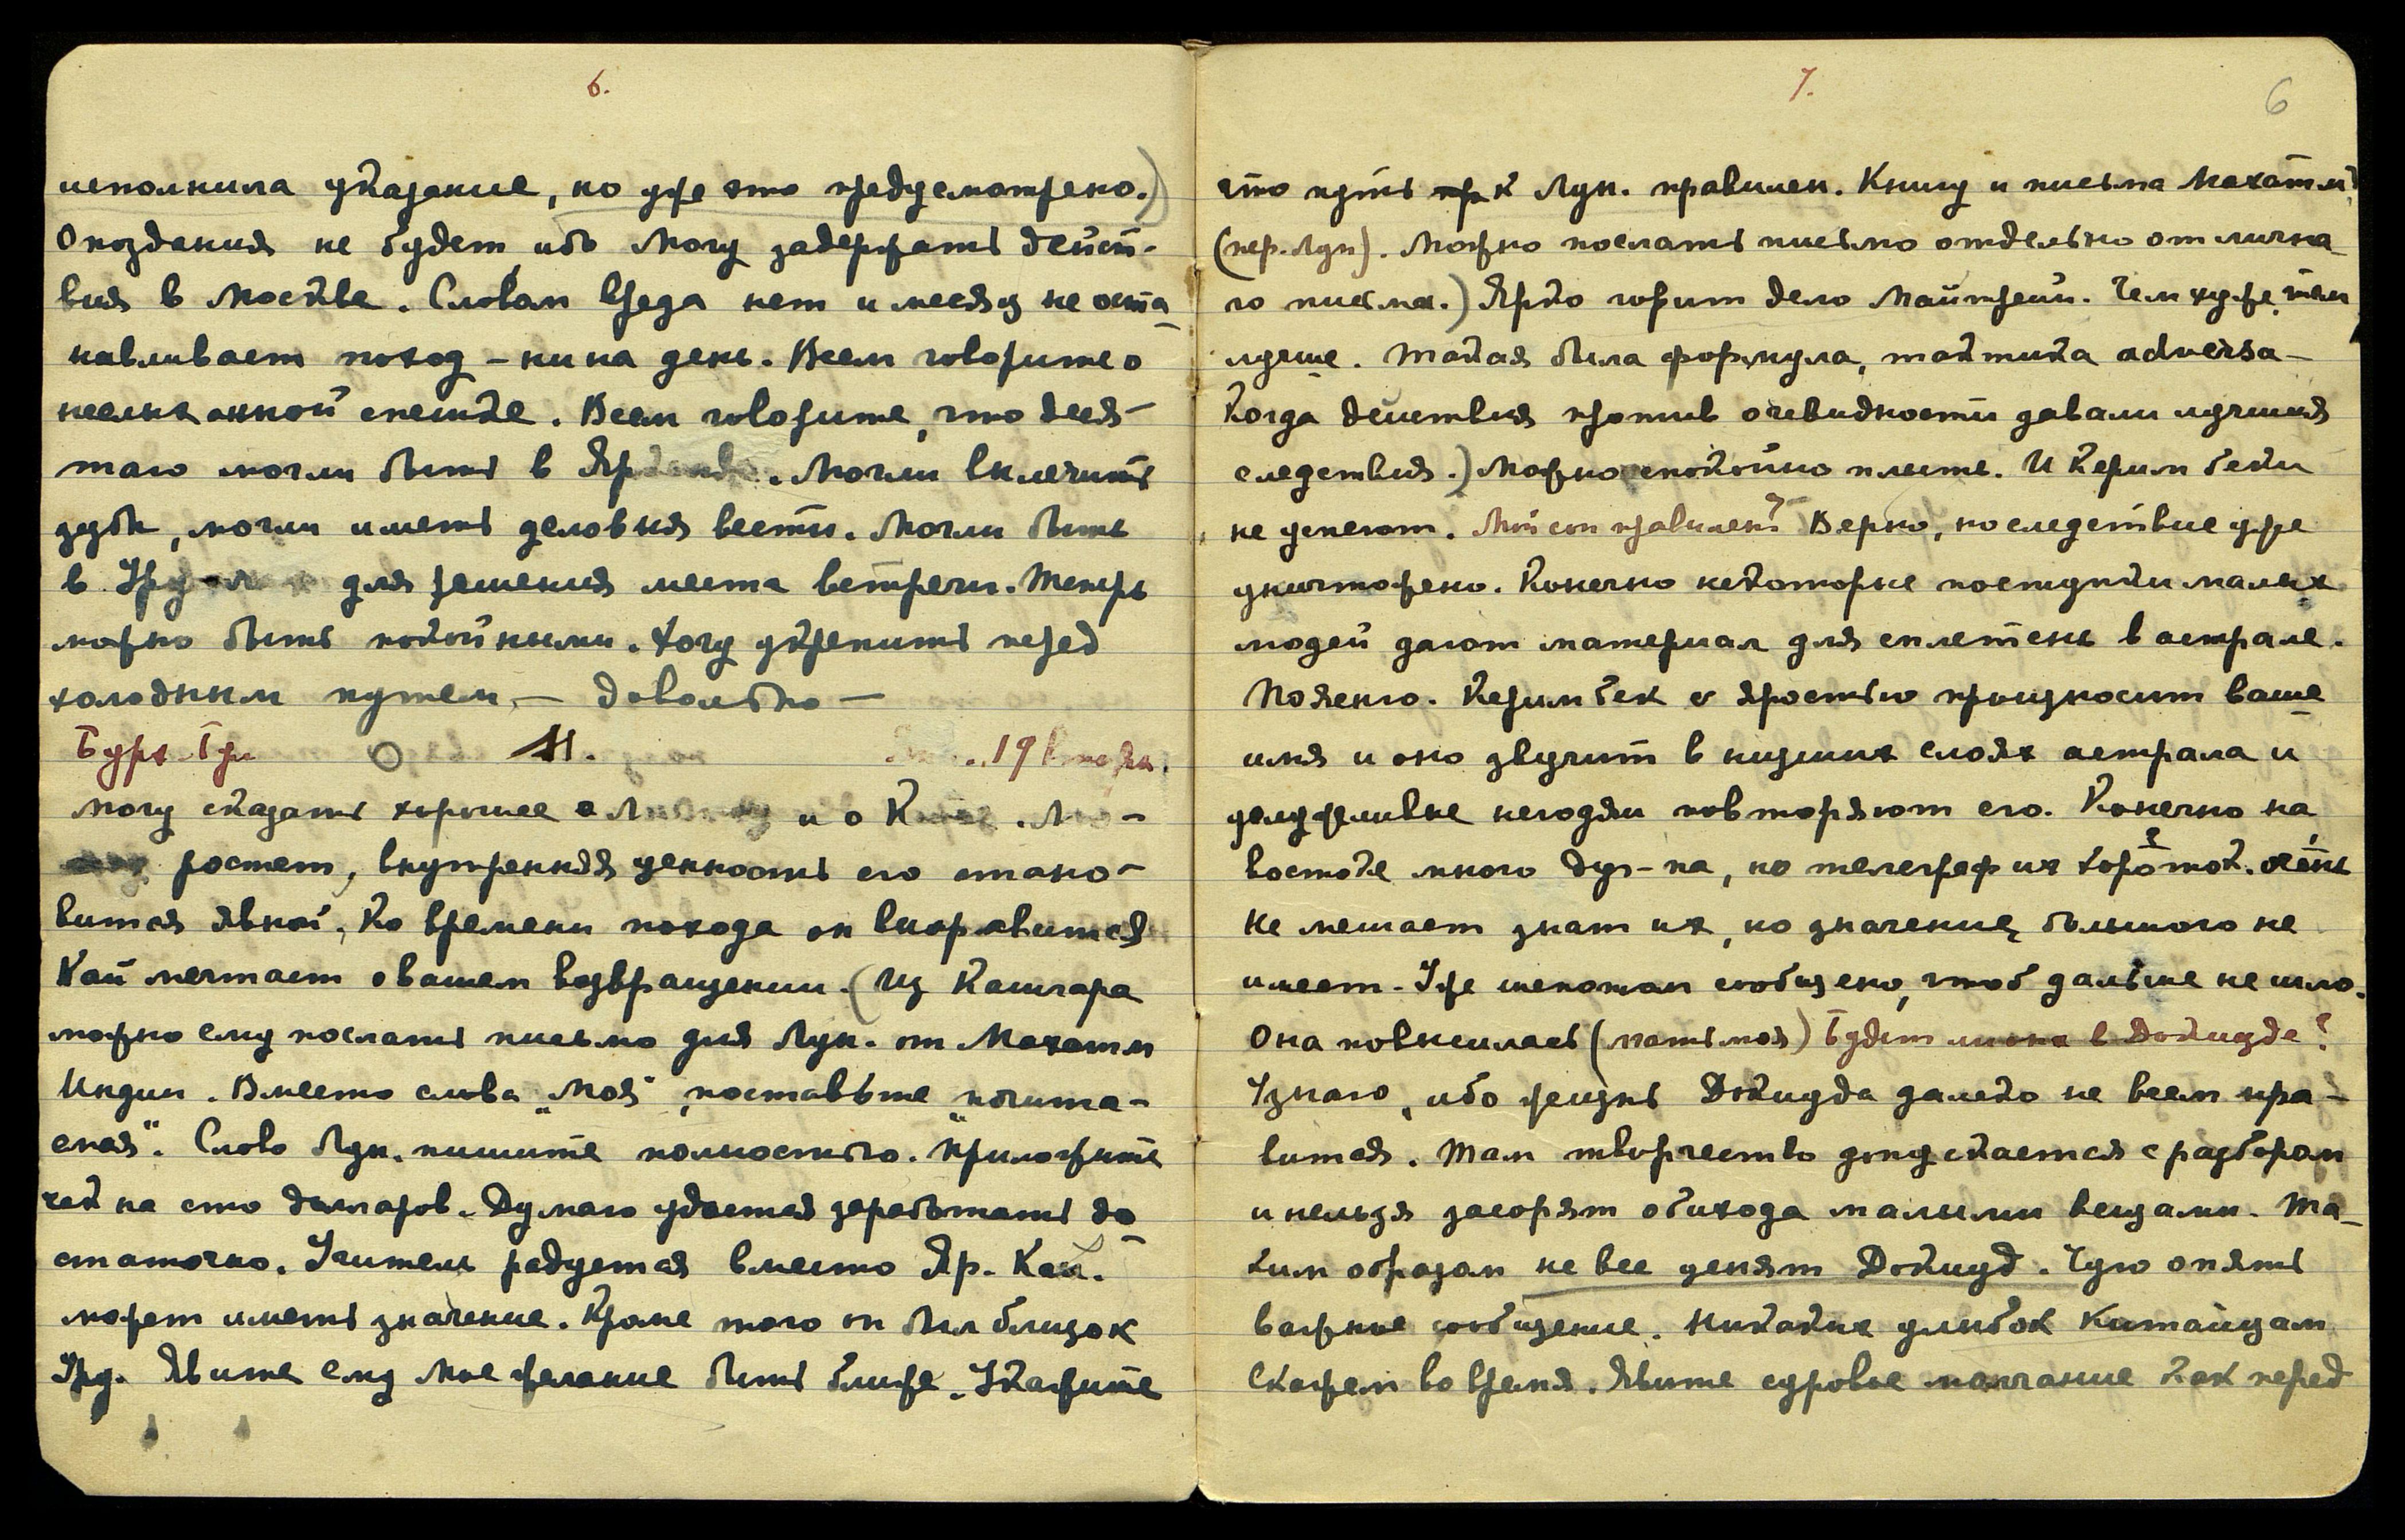 6.
исполнила указание, но уже это предусмотрено.)
Опоздания не будет ибо могу задержать дейст-
вия в Москве. Словам вреда нет и месяц не оста-
навливает поход – ни на день. Всем говорите о
неслыханной спешке. Всем говорите, что деся-
таго могли быть в Яр. Могли вылечить
зубы, могли иметь деловыя вести. Могли быть
в Уру для решения места встречи. Теперь
можно быть покойными. Хочу укрепить перед
холодным путем, – довольно –
11. 19
Могу сказать хорошее о и о
ростет, внутренняя ценность его стано-
вится явной, Ко времени похода он выправится
Кай мечтает о вашем возвращении. (Из Кашгара
можно ему послать письмо для Лун. от Махатм
Индии. Вместо слова „моя", поставьте „почита-
емая". Слово Лун. пишите полностью. Приложите
чек на сто долларов. Думаю удастся заработать до
статочно. Учитель радуется вместо Яр. Кай.
может иметь значение. Кроме того он был близок
Уру. Явите ему мое желание быть ближе. Укажите
7. 6
что путь к Лун. правилен. Книгу и письма Махатмы
(пер. Лун). Можно послать письмо отдельно от лична-
го письма.) Ярко горит дело Майтрейи. Чем хуже, тем
лучше. Такая была формула, тактика adversa –
Когда действия против очевидности давали лучшия
следствия.) Можно спокойно плыть. И Керим беки
не успеют. Мой сон правилен? Верно, но следствие уже
уничтожено. Конечно некоторые поступки малых
людей дают материал для сплетень в астрале.
Поясню. Керим бек с яростью произносит ваше
имя и оно звучит в низших слоях астрала и
услужливые негодяи повторяют его. Конечно на
востоке много дуг-па, но телеграф их короток. очень
Не мешает знат их, но значение большого не
имеет. Уже шепотом сообщено, чтоб дальше не шло.
Она повысилась (мать моя) Будет ли она в Докиуде?
Узнаю, ибо жизнь Докиуда далеко не всем нра-
вится. Там творчество допускается с разбором
и нельзя засорят обихода малыми вещами. Та-
ким образом не все ценят Докиуд. Чую опять
важное сообщение. Никаких улыбок Китайцам
Скажем во время. Явите суровое молчание как перед